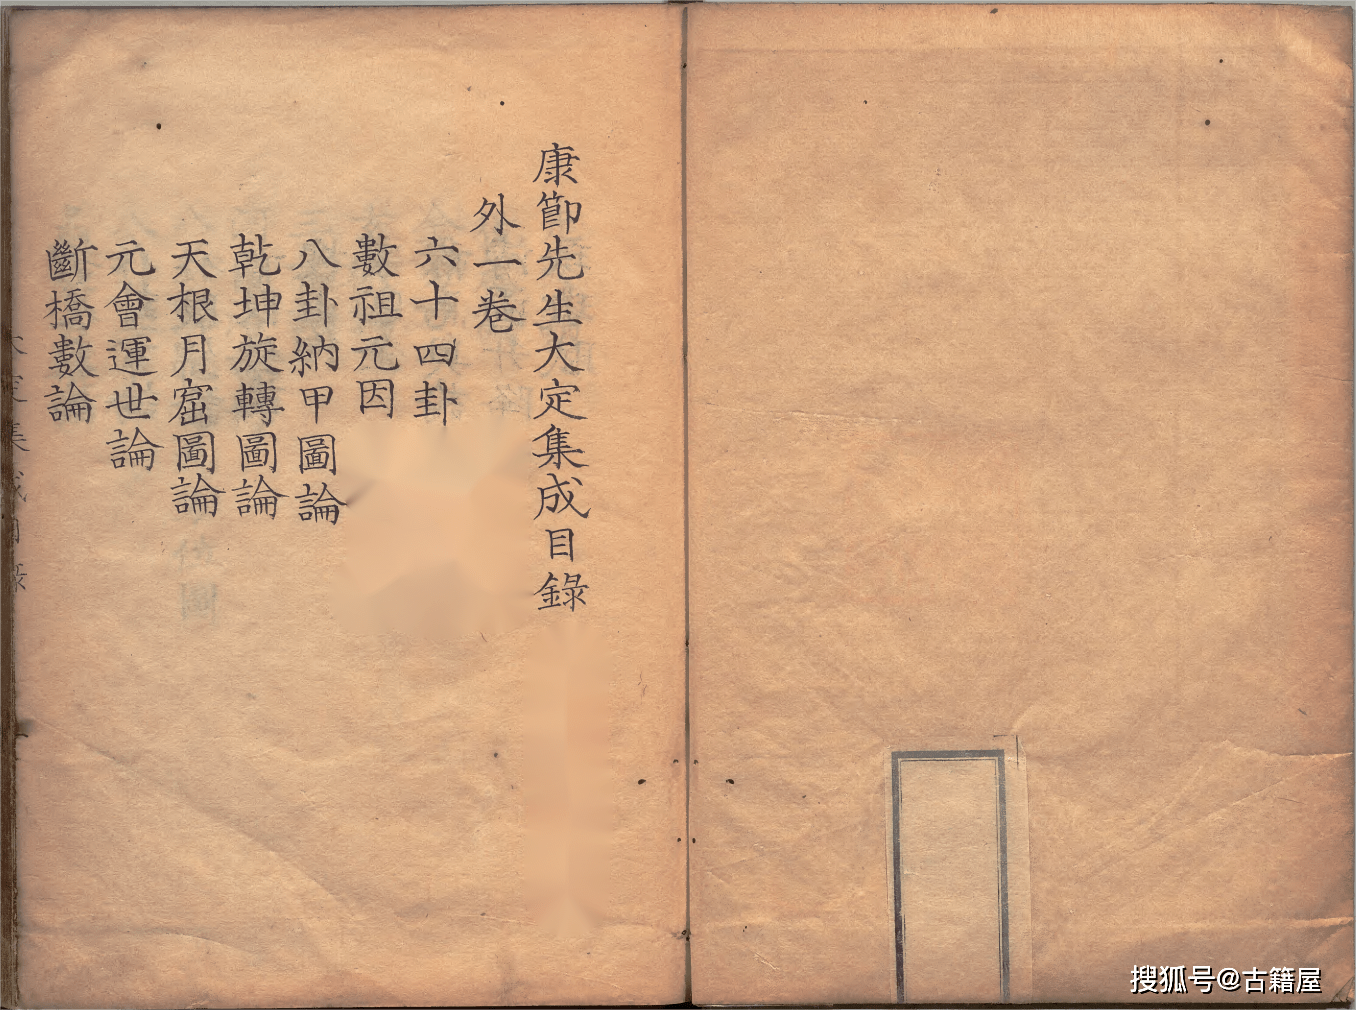 康節先生大定集成目錄
外一卷
六十四卦
數祖元因
八卦納甲圖論
乾坤旋轉圖論
天根月窟圖論
元會運世論
斷橋數論
搜狐号@古籍屋